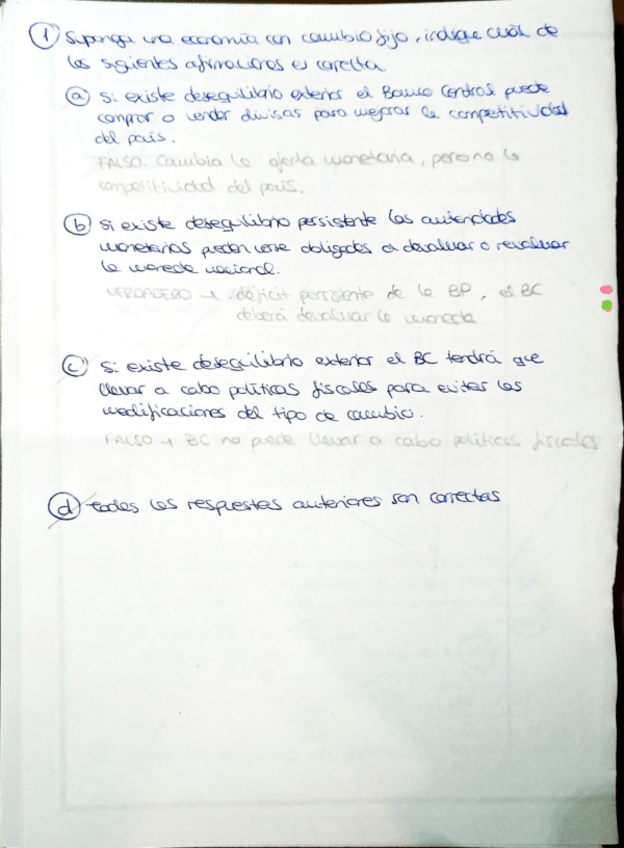 1 Suponga una economía con cambio fijo, indique cuál de
las siguientes afirmaciones es correcta
a Si existe desequilibrio exterior el Banco Central puede
comprar o vender divisas para mejorar la competitividad
del país.
FALSO. Cambia la oferta monetaria, pero no la
competitividad del país.
b Si existe desequilibrio persistente las autoridades
monetarias pueden verse obligadas a devaluar o revaluar
la moneda nacional.
VERDADERO → déficit persistente de la BP, el BC
deberá devaluar la moneda
c Si existe desequilibrio exterior el BC tendrá que
llevar a cabo políticas fiscales para evitar las
modificaciones del tipo de cambio.
FALSO → BC no puede llevar a cabo políticas fiscales
d todas las respuestas anteriores son correctas